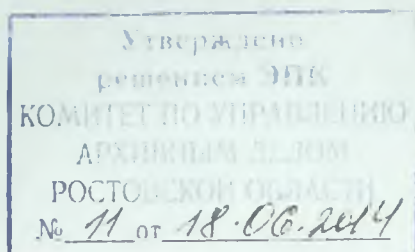 Утверждено
решением ЭПК
КОМИТЕТ ПО УПРАВЛЕНИЮ
АРХИВНЫМ ДЕЛОМ
РОСТОВСКОЙ ОБЛАСТИ
№ 11 от 18.06.2014